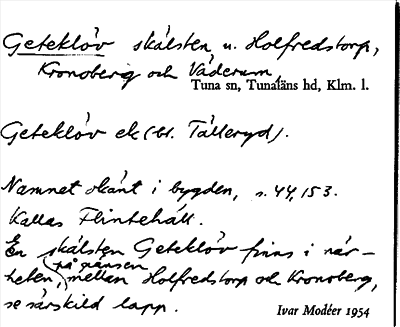 Geteklöv skälsten u. Holfredstorp,
Kronoberg och Väderum,
Tuna sn, Tunaläns hd, Klm. l.
Geteklöv ek (bl. Tälleryd).
Namnet okänt i bygden, s. 44, 153.
Kallas Flintehäll.
En skälsten Geteklöv finns i när-
heten, på gränsen mellan Holfredstorp och Kronoberg,
se särskild lapp.
Ivar Modéer 1954